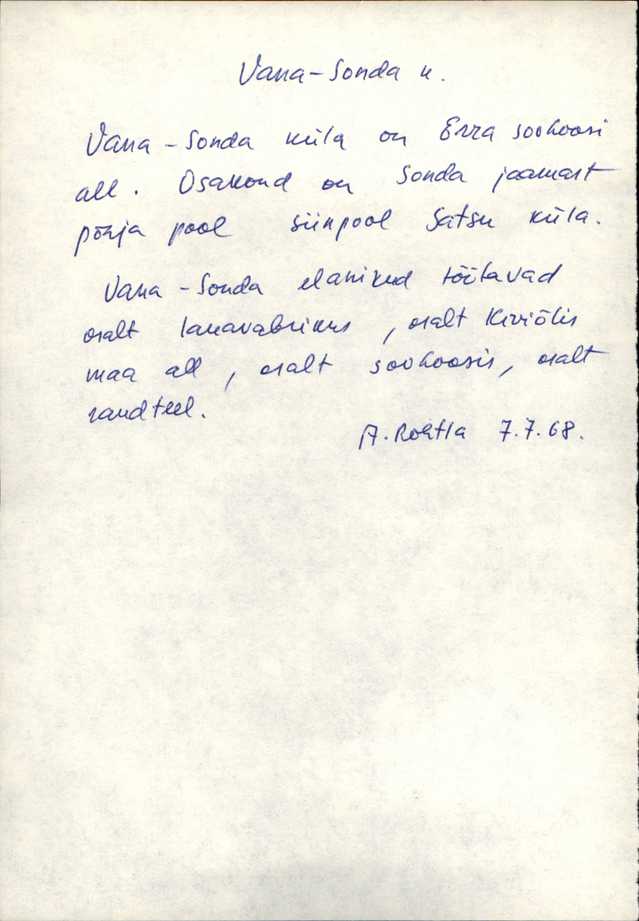 Vana-Sonda k.
Vana-Sonda küla on Erra sovhoosi
all. Osakond on Sonda jaamast
põhja pool siinpool Satsu küla.
Vana-Sonda elanikud töötavad
osalt lauavabrikus, osalt Kiviõlis
maa all, osalt sovhoosis, osalt
raudteel.
A. Rohtla 7.7.68.